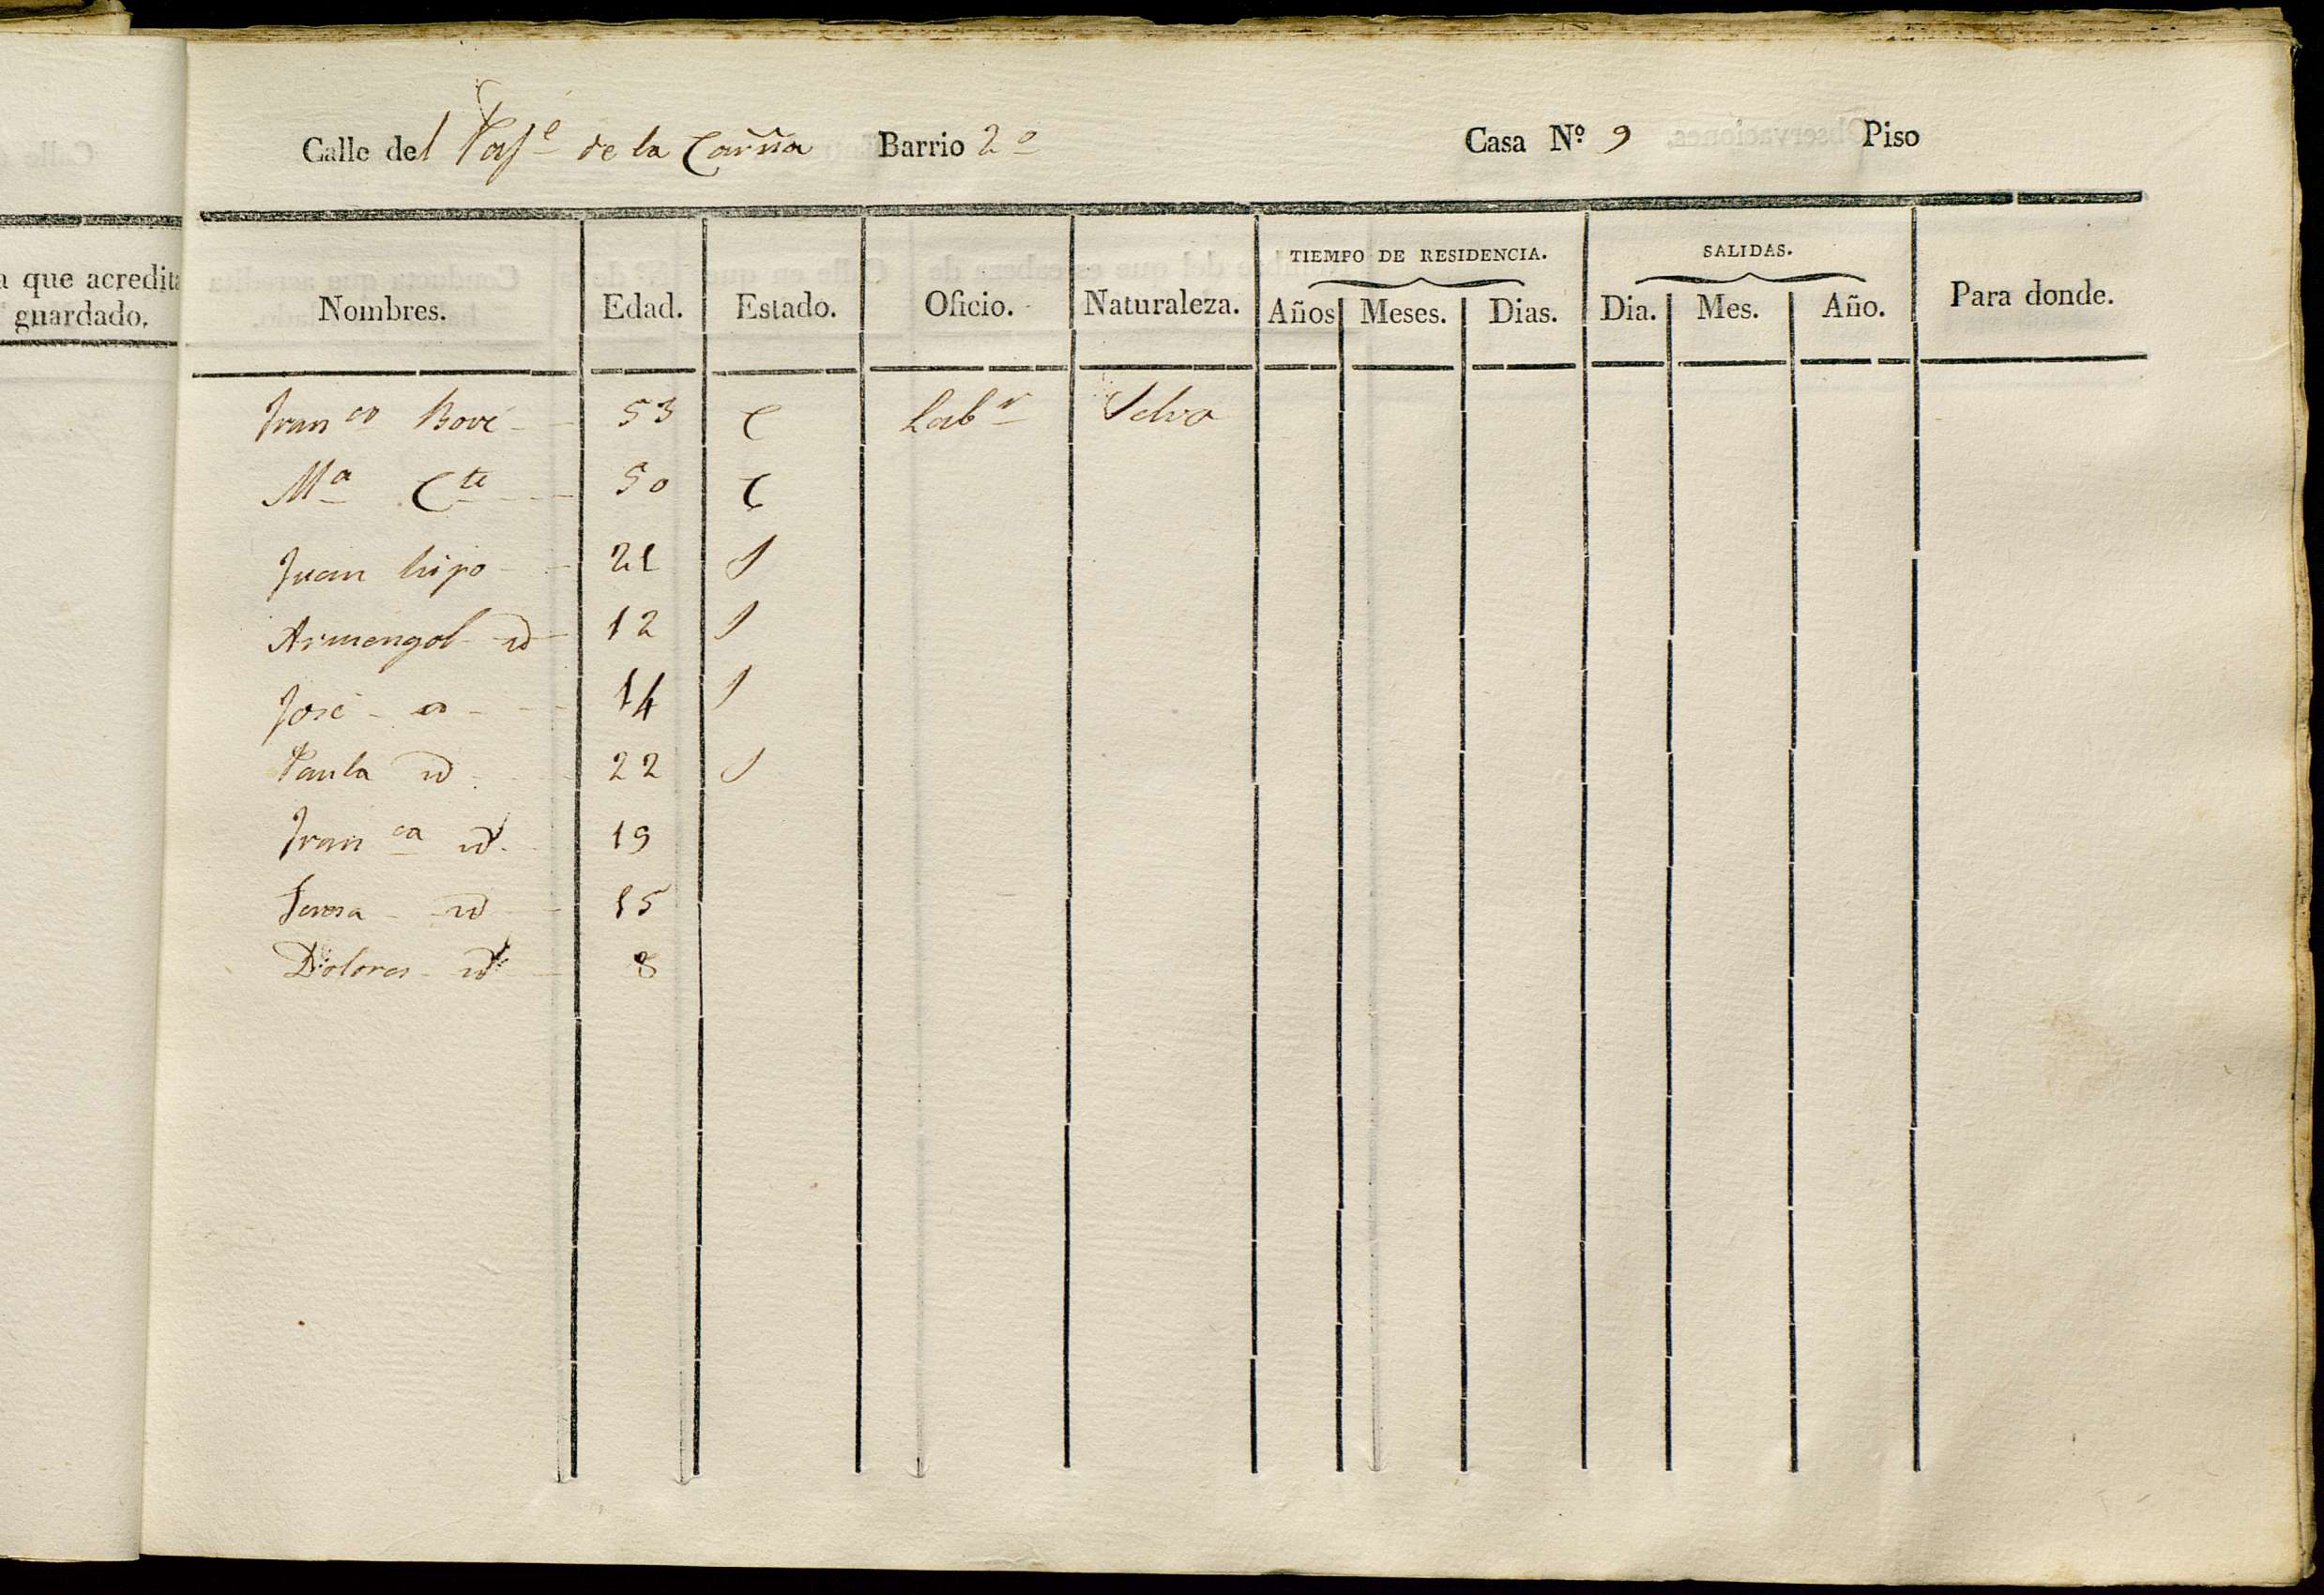 a que acredita
guardado.
Calle del Pasᵉ de la Carña Barrio 2º Casa Nº 9 Piso
TIEMPO DE RESIDENCIA. SALIDAS.
Nombres. Edad. Estado. Oficio. Naturaleza. Años Meses. Dias. Dia. Mes. Año. Para donde.
Franᶜᵒ Bové 53 C Labʳ Selva
Mª Cᵗᵉ 50 C
Juan hijo 21 S
Armengol id 12 S
José id 14 S
Paula id 22 S
Franᶜᵃ id. 19
Teresa id 15
Dolores id 8